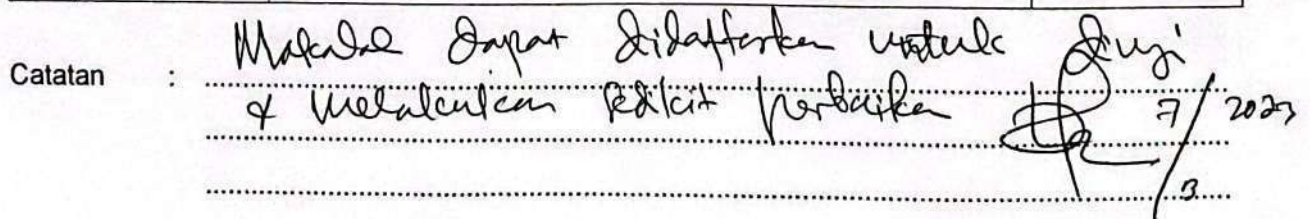 Makalah dapat didaftarkan untuk diuji
Catatan :
& melakukan sedikit perbaikan 7/3 2023